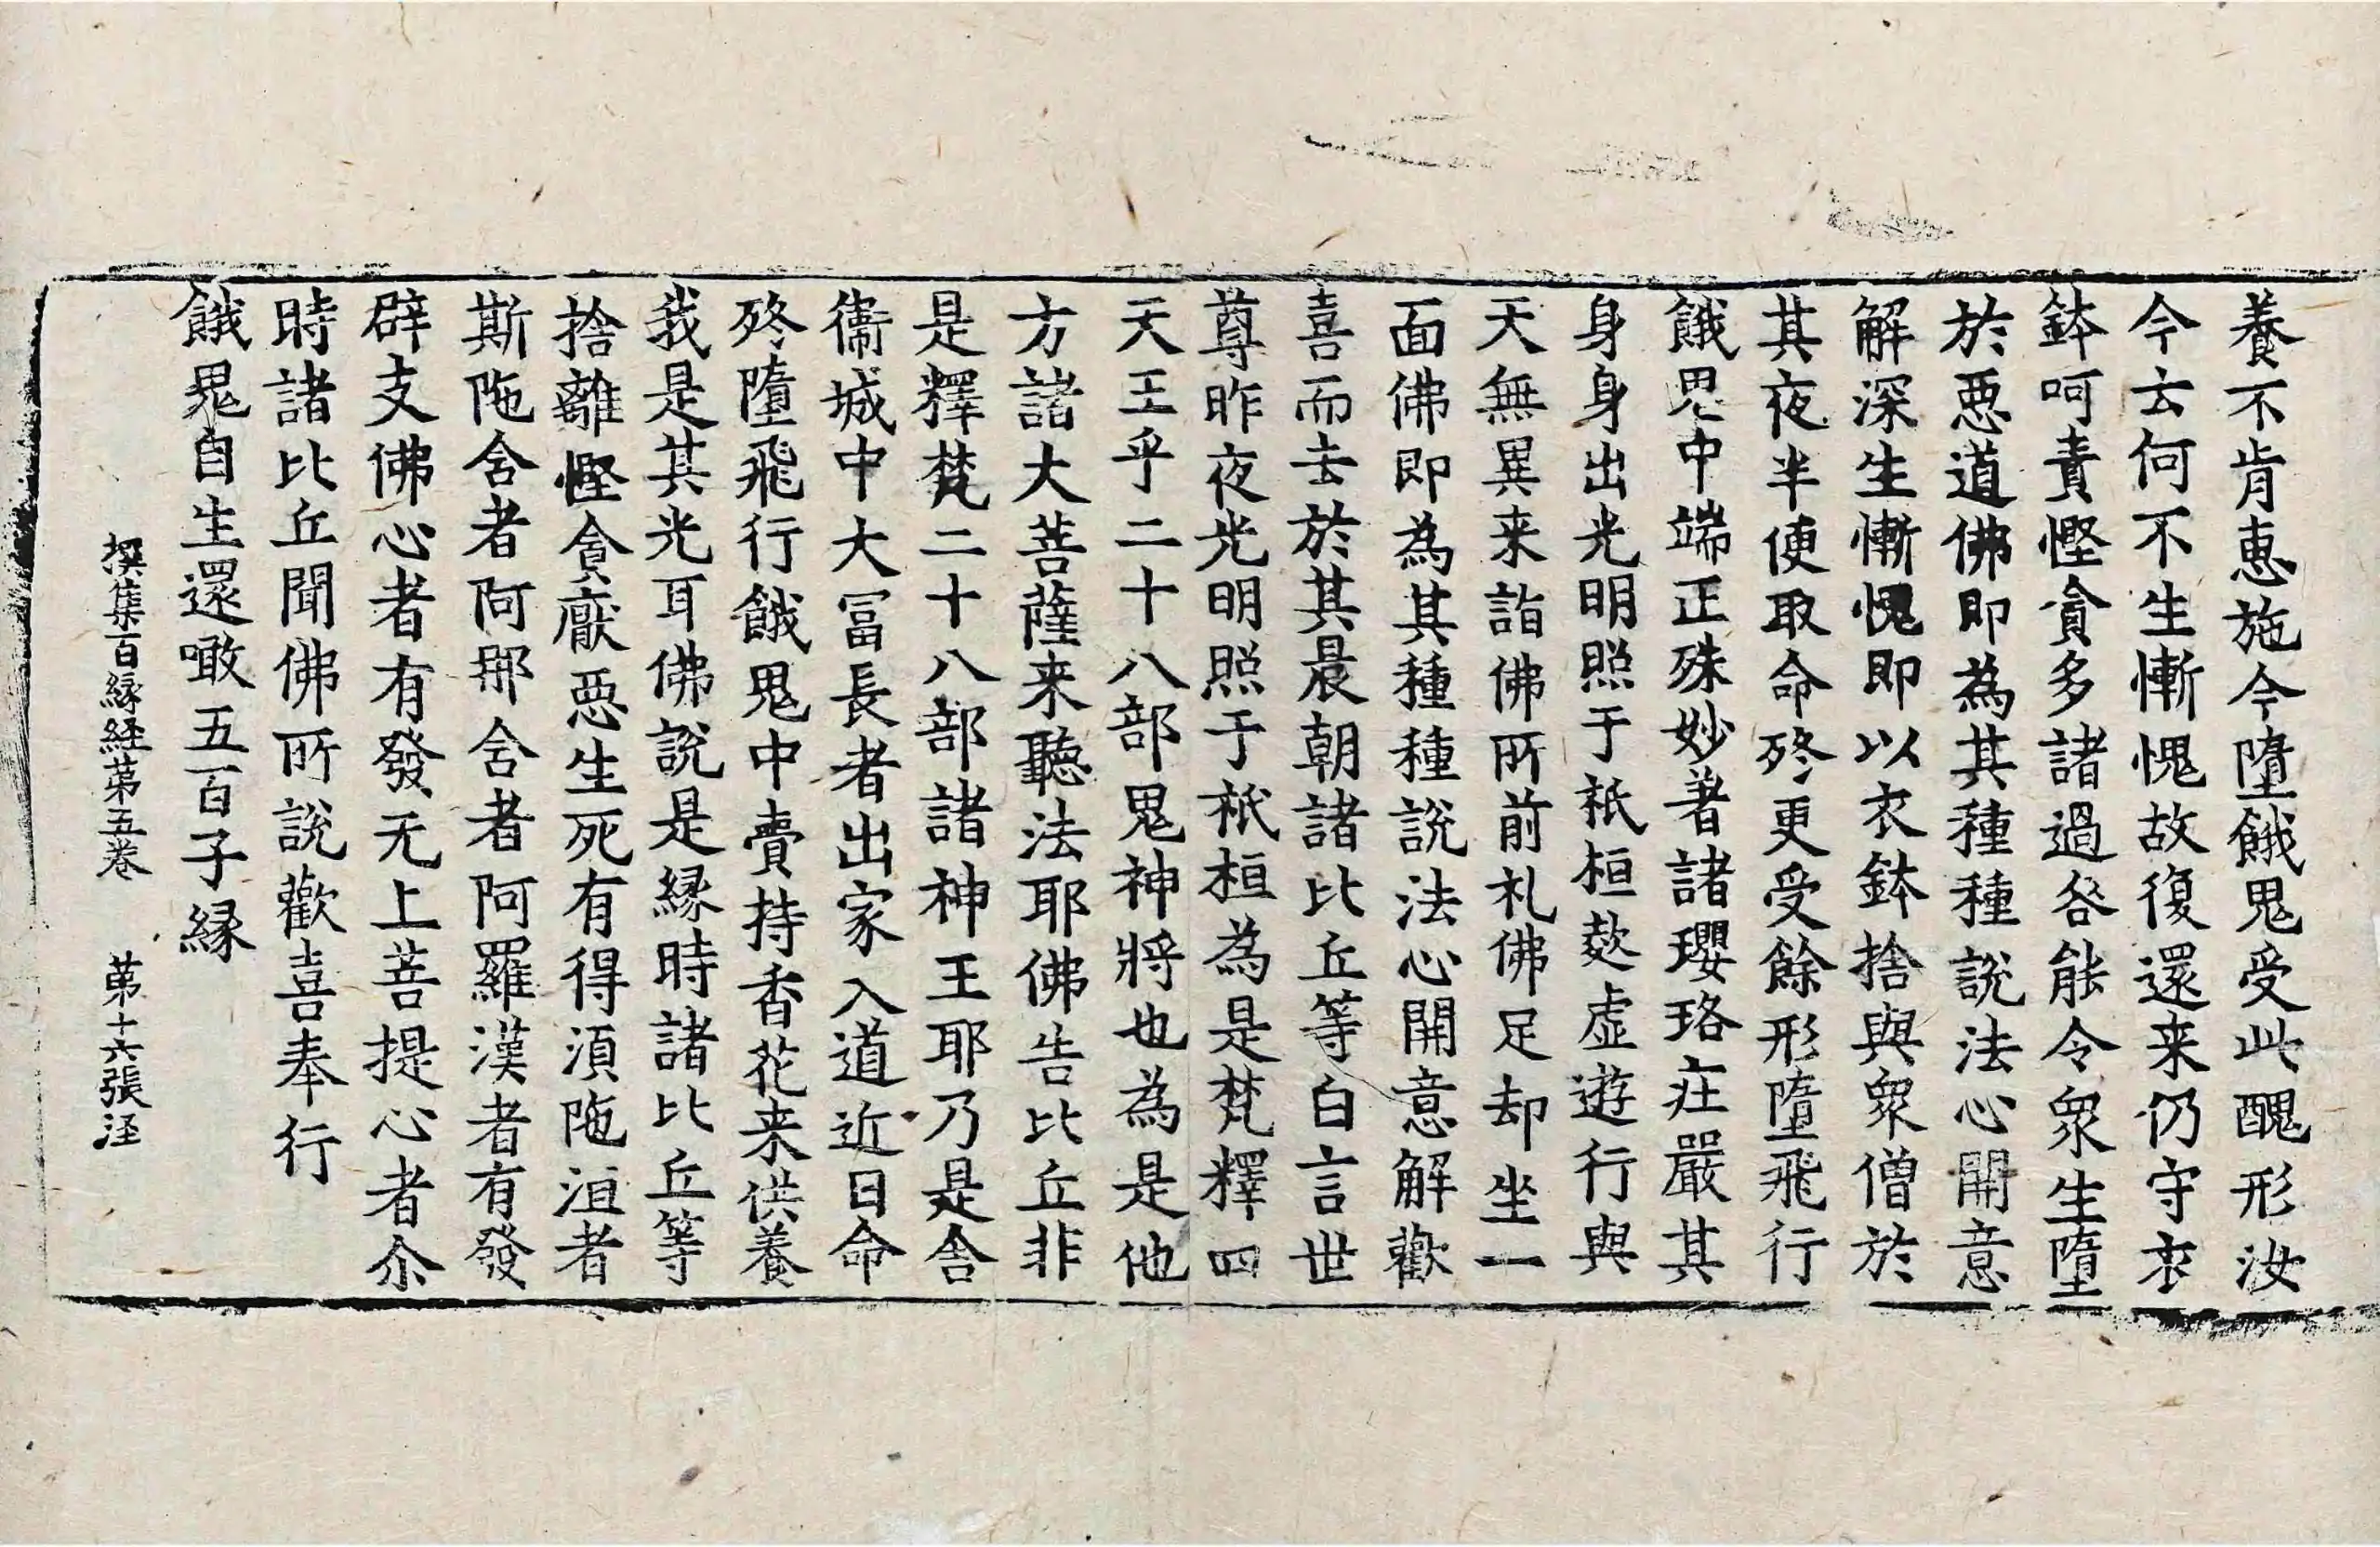 養不肯惠施今墮餓鬼受此醜形汝
今云何不生慚愧故復還来仍守衣
鉢呵責慳貪多諸過咎能令衆生墮
於惡道佛即為其種種說法心開意
解深生慚愧即以衣鉢捨與衆僧於
其夜半便取命終更受餘形墮飛行
餓鬼中端正殊妙著諸瓔珞庄嚴其
身身出光明照于祇桓欻虛遊行與
天無異来詣佛所前礼佛足却坐一
面佛即為其種種說法心開意解歡
喜而去於其晨朝諸比丘等白言世
尊昨夜光明照于祇桓為是梵釋四
天王乎二十八部鬼神將也為是他
方諸大菩薩来聽法耶佛告比丘非
是釋梵二十八部諸神王耶乃是舍
衛城中大冨長者出家入道近日命
終墮飛行餓鬼中賷持香花来供養
我是其光耳佛說是縁時諸比丘等
捨離慳貪厭惡生死有得湏陁洹者
斯陁含者阿那含者阿羅漢者有發
辟支佛心者有發无上菩提心者尒
時諸比丘聞佛所說歡喜奉行
餓鬼自生還噉五百子縁
撰集百縁経苐五卷　苐十六張 汪